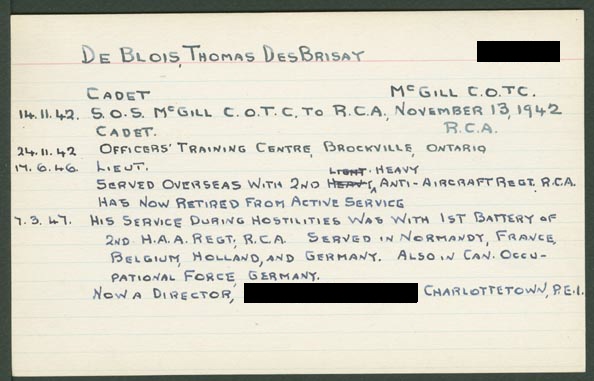 DE BLOIS, THOMAS DESBRISAY
CADET McGILL C.O.T.C.
14.11.42. S.O.S. McGILL C.O.T.C. TO R.C.A., NOVEMBER 13, 1942
CADET. R.C.A.
24.11.42 OFFICERS' TRAINING CENTRE, BROCKVILLE, ONTARIO
17.6.46. LIEUT. LIGHT HEAVY
SERVED OVERSEAS WITH 2ND HEAVY, ANTI-AIRCRAFT REGT. R.C.A.
HAS NOW RETIRED FROM ACTIVE SERVICE
7.3.47. HIS SERVICE DURING HOSTILITIES WAS WITH 1ST BATTERY OF
2ND. H.A.A. REGT., R.C.A. SERVED IN NORMANDY, FRANCE,
BELGIUM, HOLLAND, AND GERMANY. ALSO IN CAN. OCCU-
PATIONAL FORCE, GERMANY.
NOW A DIRECTOR, CHARLOTTETOWN, P.E.I.